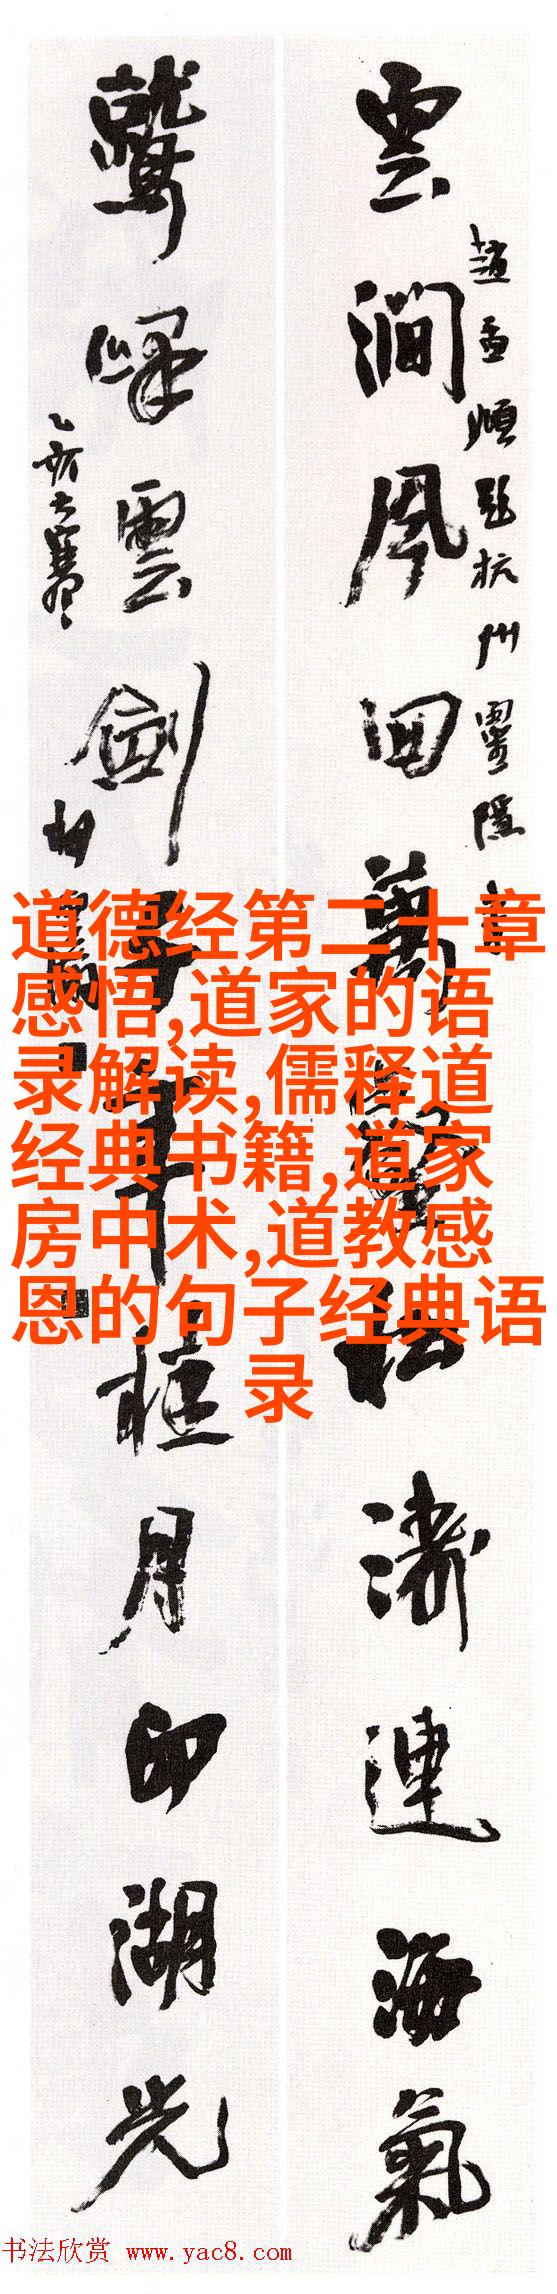 趙孟頫題杭州靈隱寺
雲澗風回萬壑松濤連海氣
鷲峰雲斂千年桂月印湖光
乙亥大寒
道德经第二十章
感悟,道家的语
录解读,儒释道
经典书籍,道家
房中术,道教感
恩的句子经典语
录
书法欣赏 www.yac8.com